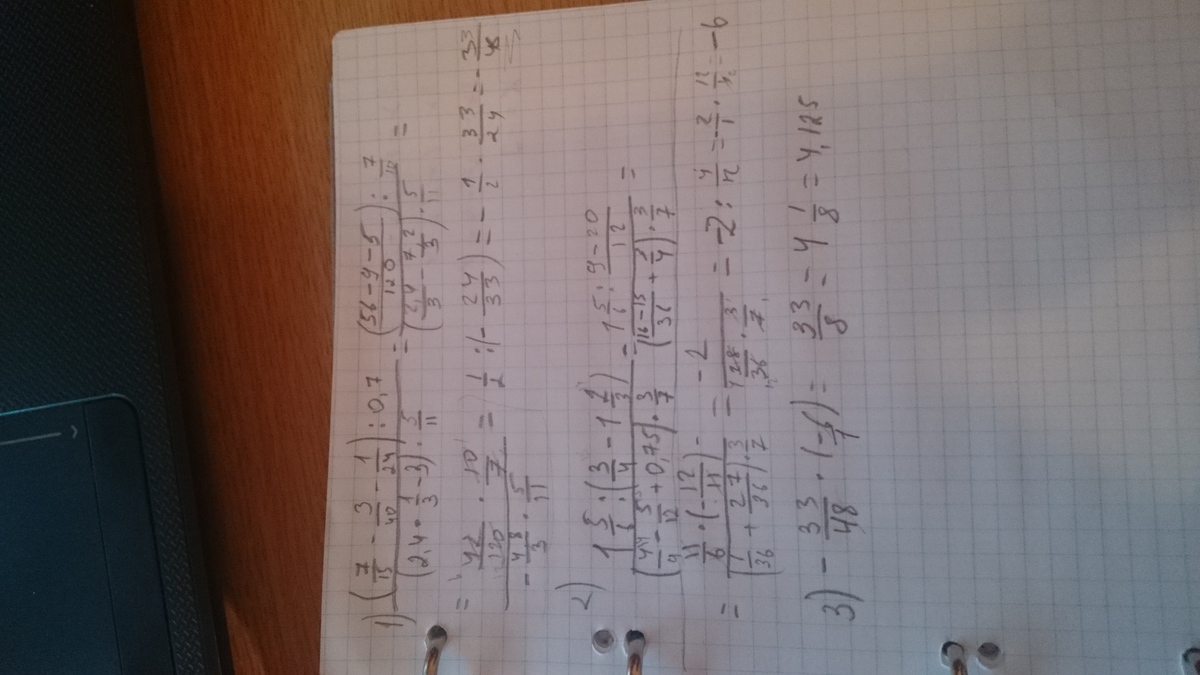 1) ((7/15 - 3/40 - 1/24) : 0,7)/((2,4 · 1/3 - 3) · 5/11) = ((56-9-5)/120 : 7/10)/((2,4/3 - 7 2/3) · 5/11) =
= (42/120 · 10/7)/(-4 8/3 · 5/11) = 1/2 : (- 24/33) = - 1/2 · 33/24 = - 33/48
2) (1 5/6 : (3/4 - 1 2/3))/((4/9 - 5/12 + 0,75) · 3/7) = (1 5/6 : (9-20)/12)/(((16-15)/36 + 3/4) · 3/7) =
= (11/6 · (- 12/11))/((1/36 + 27/36) · 3/7) = (-2)/(28/36 · 3/7) = -2 : 4/12 = - 2/1 · 12/4 = -6
3) - 33/48 · (- 6/1) = 33/8 = 4 1/8 = 4,125